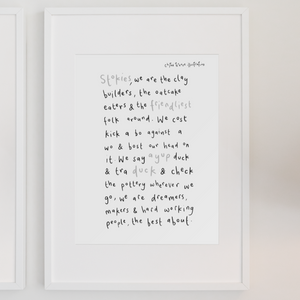 Stokies, we are the clay
builders, the oatcake
eaters & the friendliest
folk around. We cost
kick a bo against a
wo & bost our head on
it. We say ayup duck
& tra duck & check
the pottery wherever we
go, we are dreamers,
makers & hard working
people, the best about.